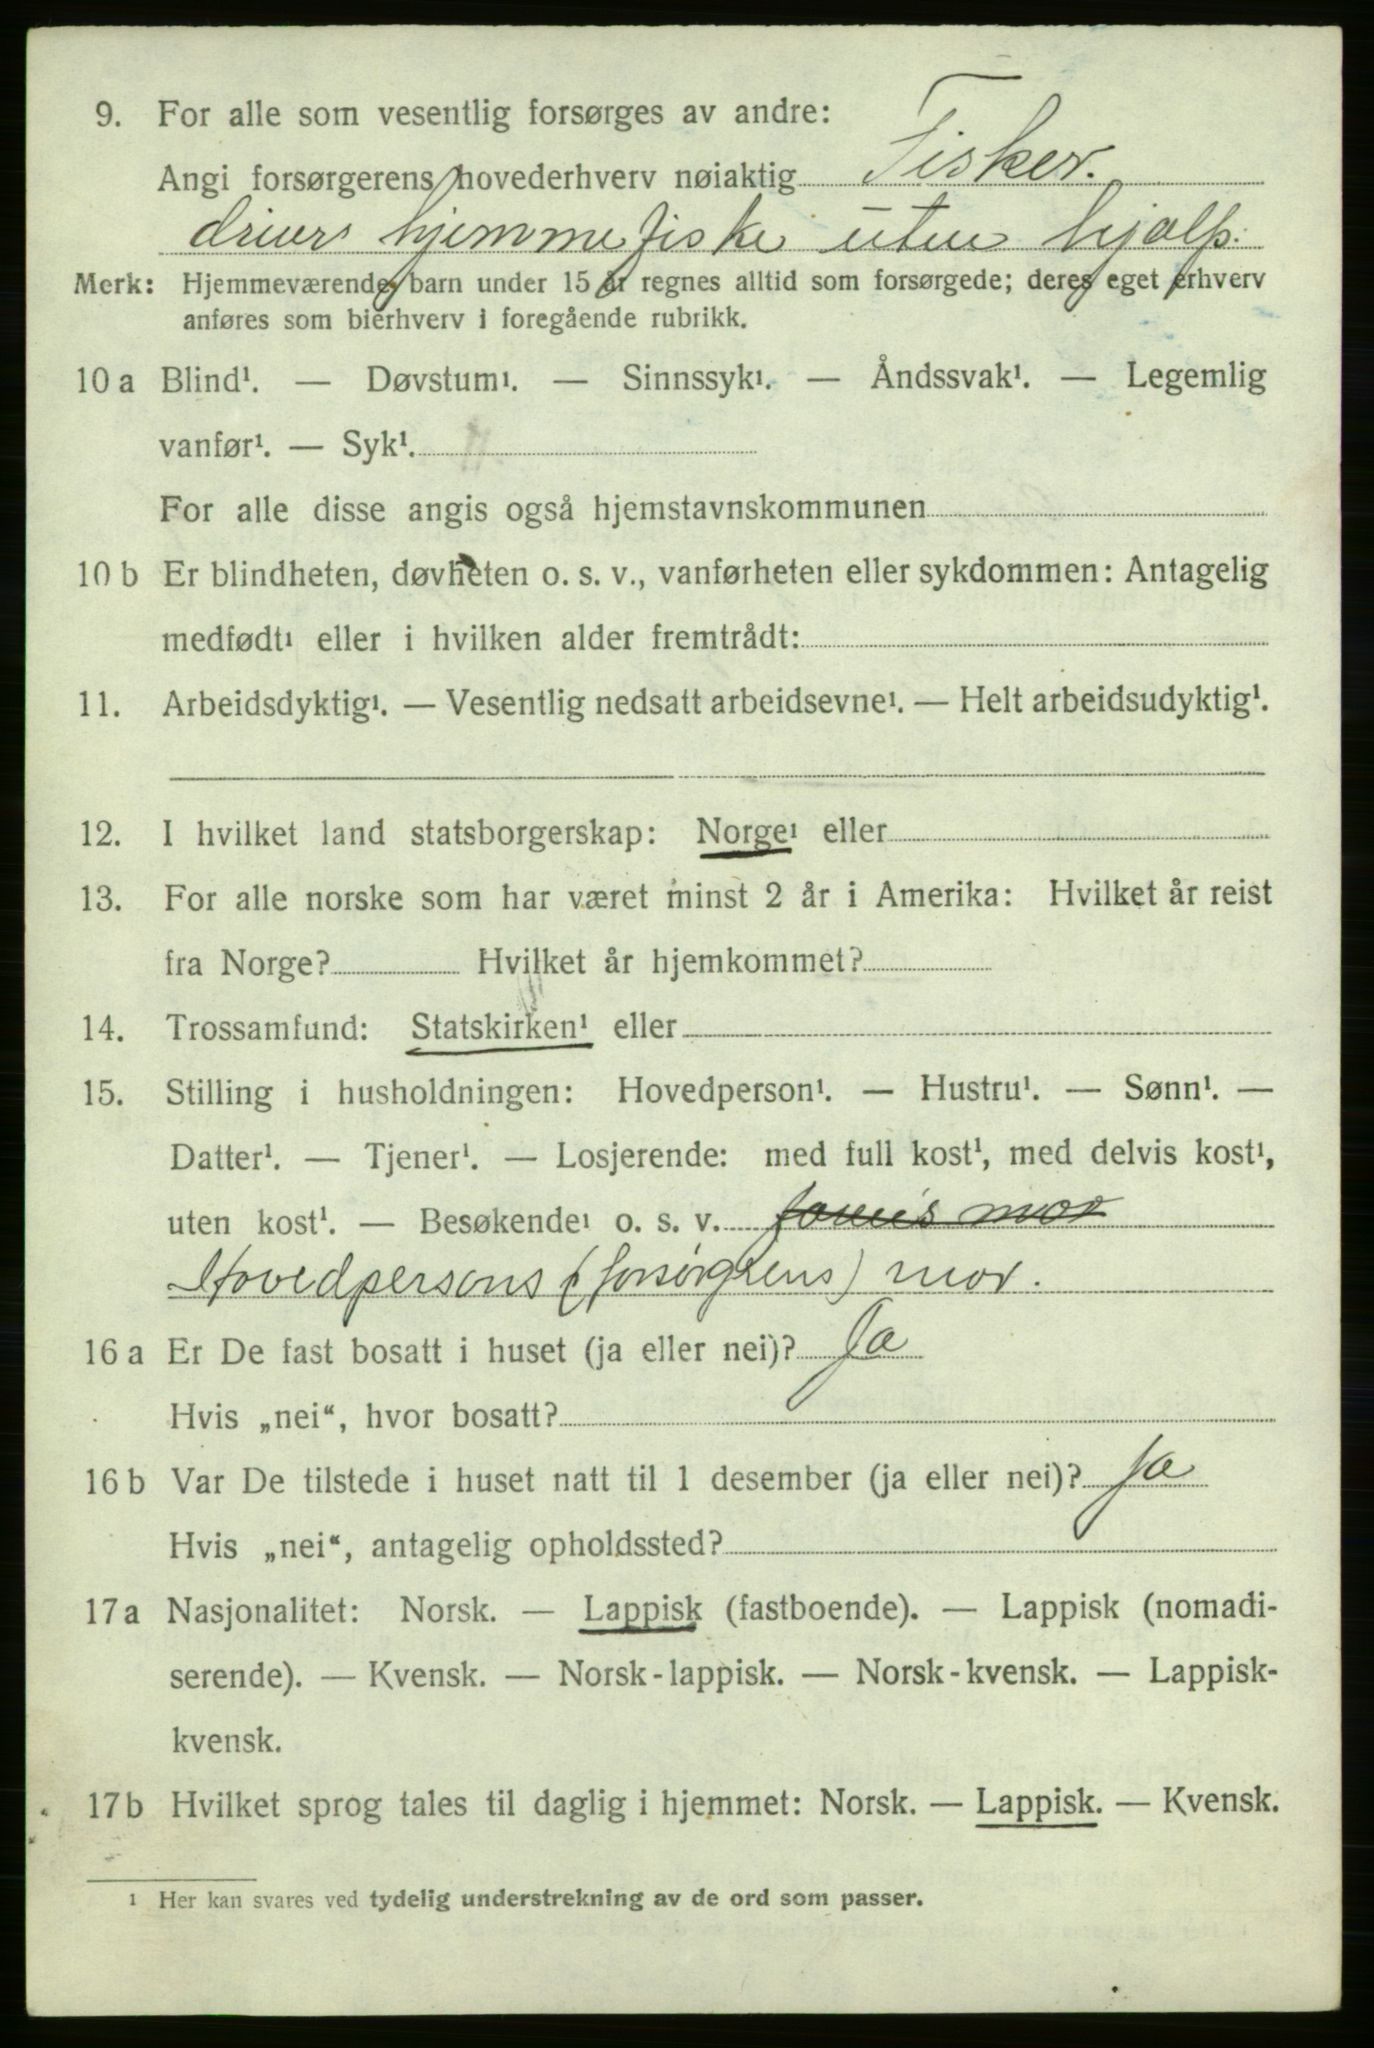 9. For alle som vesentlig forsørges av andre:
Angi forsørgerens hovederhverv nøiaktig Fisker.
driver hjemmefiske uten hjælp.
Merk: Hjemmeværende barn under 15 år regnes alltid som forsørgede; deres eget erhverv
anføres som bierhverv i foregående rubrikk.
10 a Blind¹. — Døvstum¹. — Sinnssyk¹. — Åndssvak¹. — Legemlig
vanfør¹. — Syk¹.
For alle disse angis også hjemstavnskommunen
10 b Er blindheten, døvheten o. s. v., vanførheten eller sykdommen: Antagelig
medfødt¹ eller i hvilken alder fremtrådt:
11. Arbeidsdyktig¹. — Vesentlig nedsatt arbeidsevne¹. — Helt arbeidsudyktig¹.
12. I hvilket land statsborgerskap: Norge¹ eller
13. For alle norske som har været minst 2 år i Amerika: Hvilket år reist
fra Norge? Hvilket år hjemkommet?
14. Trossamfund: Statskirken¹ eller
15. Stilling i husholdningen: Hovedperson¹. — Hustru¹. — Sønn¹. —
Datter¹. — Tjener¹. — Losjerende: med full kost¹, med delvis kost¹,
uten kost¹. — Besøkende¹ o. s. v. mor
Hovedpersons (forsørgerens) mor.
16 a Er De fast bosatt i huset (ja eller nei)? Ja
Hvis „nei“, hvor bosatt?
16 b Var De tilstede i huset natt til 1 desember (ja eller nei)? Ja
Hvis „nei“, antagelig opholdssted?
17 a Nasjonalitet: Norsk. — Lappisk (fastboende). — Lappisk (nomadi-
serende). — Kvensk. — Norsk-lappisk. — Norsk-kvensk. — Lappisk-
kvensk.
17 b Hvilket sprog tales til daglig i hjemmet: Norsk. — Lappisk. — Kvensk.
¹ Her kan svares ved tydelig understrekning av de ord som passer.